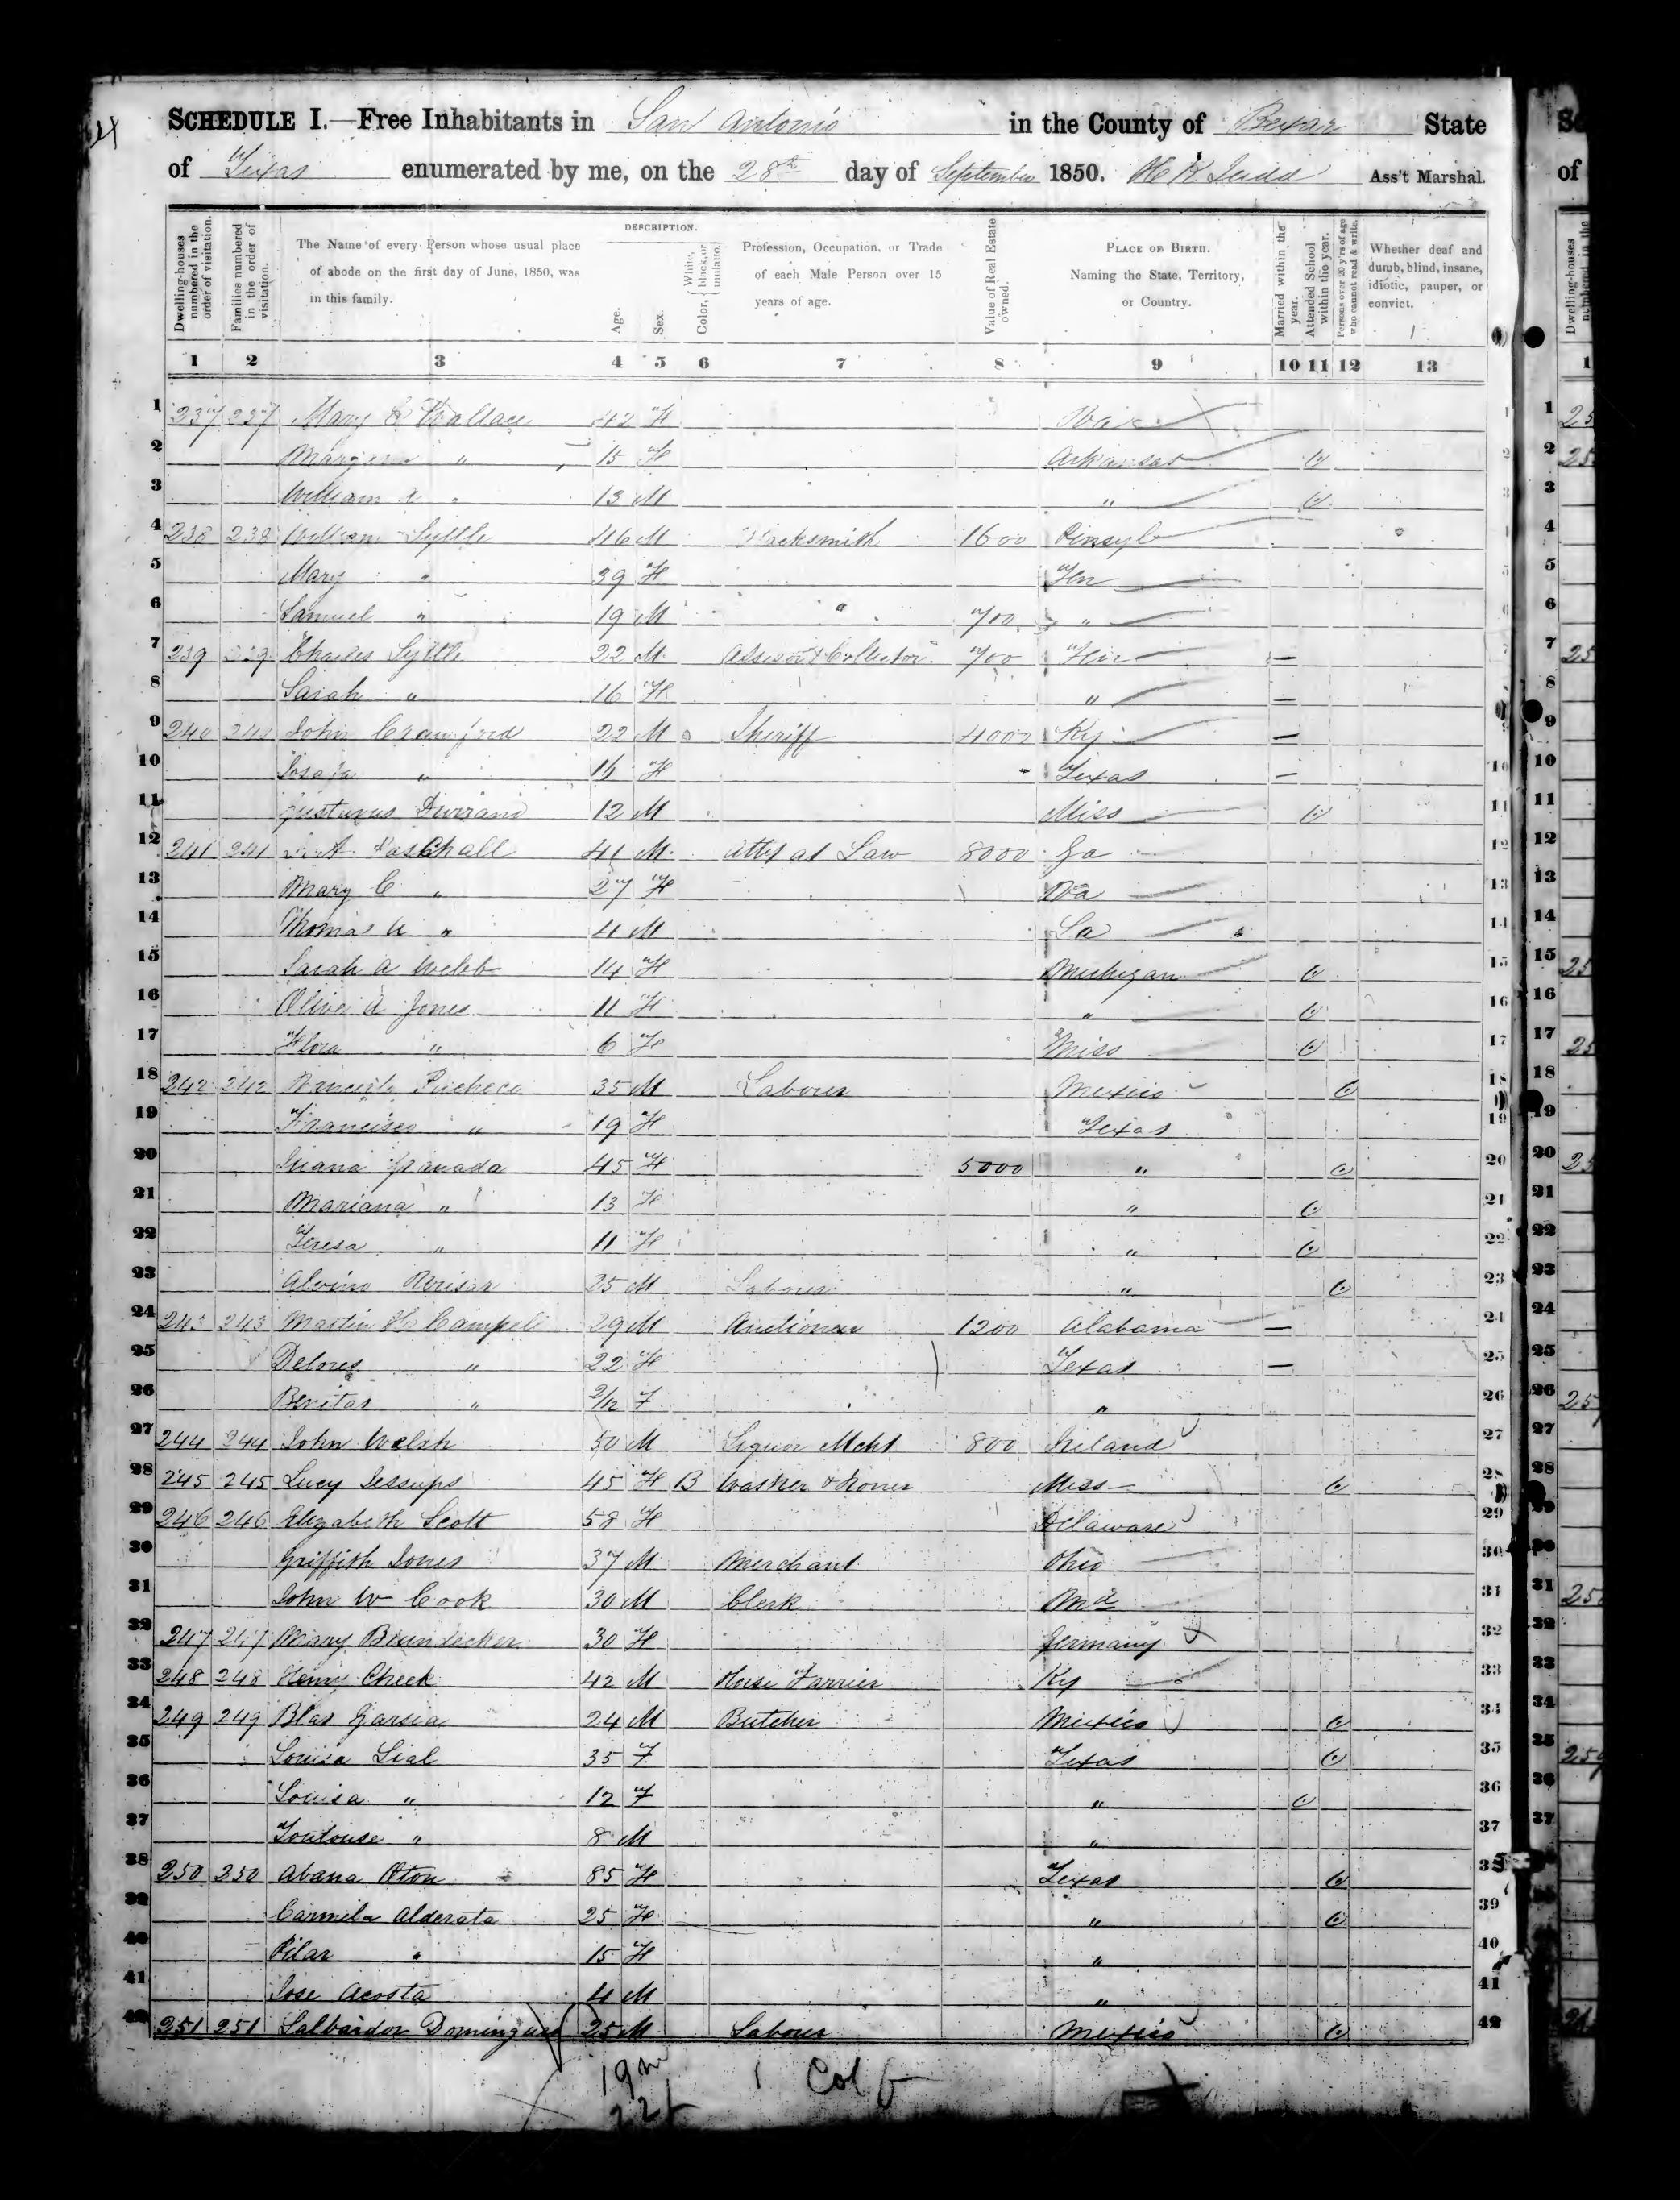 SCHEDULE I.—Free Inhabitants in San Antonio in the County of Bexar State
of Texas enumerated by me, on the 28th day of September 1850. H K Judd Ass't Marshal.
Dwelling-houses numbered in the order of visitation.
Families numbered in the order of visitation.
The Name of every Person whose usual place of abode on the first day of June, 1850, was in this family.
DESCRIPTION.
Age.
Sex.
Color, White, black, or mulatto.
Profession, Occupation, or Trade of each Male Person over 15 years of age.
Value of Real Estate owned.
PLACE OF BIRTH. Naming the State, Territory, or Country.
Married within the year.
Attended School within the year.
Persons over 20 y'rs of age who cannot read & write.
Whether deaf and dumb, blind, insane, idiotic, pauper, or convict.
1 2 3 4 5 6 7 8 9 10 11 12 13
1 237 237 Mary Wallace 42 F 1
2 " 15 F Arkansas 2
3 William A " 13 M " 3
4 238 238 William Lyttle 46 M Blacksmith 1600 Pinsyl
5 Mary " 39 F Ten 5
6 Samuel " 19 M " 700 " 6
7 239 239 Charles Lyttle 22 M Assesor & Collector 700 Ten — 7
8 Sarah " 16 F " —
9 240 240 John Crawford 22 M Sheriff 4000 Ky — 9
10 " 16 F Texas — 10
11 Gustavus Durrand 12 M Miss 11
12 241 241 Paschall 41 M Atty at Law 8000 Ga 12
13 Mary C " 27 F Va 13
14 Thomas A " 4 M La 14
15 Sarah A Webb 14 F Michigan 15
16 Olive A Jones 11 F " 16
17 Flora " 6 F Miss 17
18 242 242 Pacheco 35 M Laborer Mexico 18
19 Francisco " 19 F Texas 19
20 Juana Granada 45 F 5000 " 20
21 Mariana " 13 F " 21
22 Teresa " 11 F " 22
23 Alvino 25 M Laborer " 23
24 243 243 Martin H Campell 29 M Auctioneer 1200 Alabama — 24
25 Delores " 22 F Texas — 25
26 Benitas " 2/12 F " 26
27 244 244 John Welsh 50 M Liquor Mcht 800 Ireland 27
28 245 245 Lucy Jessups 45 F B Washer & Roner Miss 28
29 246 246 Elizabeth Scott 58 F Delaware 29
30 Griffith Jones 37 M Merchant Ohio 30
31 John W Cook 30 M Clerk Md 31
32 247 247 Mary 30 F Germany 32
33 248 248 Henry Cheek 42 M Horse Farrier Ky 33
34 249 249 Blas Garsia 24 M Butcher Mexico 34
35 Louisa Lial 35 F Texas 35
36 Louisa " 12 F " 36
37 Toulouse " 8 M " 37
38 250 250 Abana Oton 85 F Texas 38
39 Carmila Alderata 25 F " 39
40 Pilar " 15 F " 40
41 Jose Acosta 4 M " 41
42 251 251 Salbardor Domingues 25 M Laborer Mexico 42
19 m 1 Col f
22 f